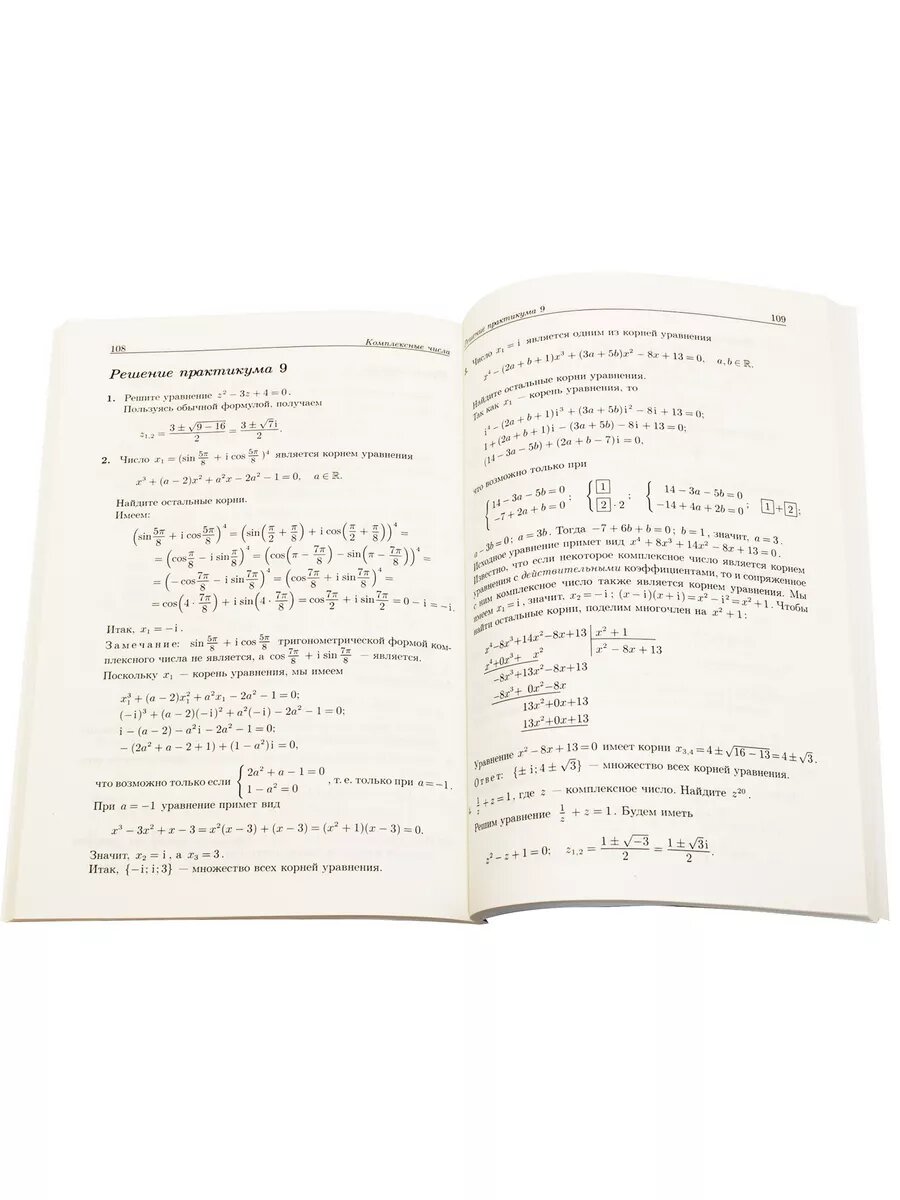 108 Комплексные числа
Решение практикума 9
1. Решите уравнение z² − 3z + 4 = 0.
Пользуясь обычной формулой, получаем
z₁,₂ = (3 ± √(9 − 16))/2 = (3 ± √7i)/2.
2. Число x₁ = (sin 5π/8 + i cos 5π/8)⁴ является корнем уравнения
x³ + (a − 2)x² + a²x − 2a² − 1 = 0, a ∈ ℝ.
Найдите остальные корни.
Имеем:
(sin 5π/8 + i cos 5π/8)⁴ = (sin(π/2 + π/8) + i cos(π/2 + π/8))⁴ =
= (cos π/8 − i sin π/8)⁴ = (cos(π − 7π/8) − sin(π − 7π/8))⁴ =
= (−cos 7π/8 − i sin 7π/8)⁴ = (cos 7π/8 + i sin 7π/8)⁴ =
= cos(4 · 7π/8) + i sin(4 · 7π/8) = cos 7π/2 + i sin 7π/2 = 0 − i = −i.
Итак, x₁ = −i.
Замечание: sin 5π/8 + i cos 5π/8 тригонометрической формой ком-
плексного числа не является, а cos 7π/8 + i sin 7π/8 — является.
Поскольку x₁ — корень уравнения, мы имеем
x₁³ + (a − 2)x₁² + a²x₁ − 2a² − 1 = 0;
(−i)³ + (a − 2)(−i)² + a²(−i) − 2a² − 1 = 0;
i − (a − 2) − a²i − 2a² − 1 = 0;
− (2a² + a − 2 + 1) + (1 − a²)i = 0,
что возможно только если { 2a² + a − 1 = 0
1 − a² = 0 , т. е. только при a = −1.
При a = −1 уравнение примет вид
x³ − 3x² + x − 3 = x²(x − 3) + (x − 3) = (x² + 1)(x − 3) = 0.
Значит, x₂ = i, а x₃ = 3.
Итак, {−i; i; 3} — множество всех корней уравнения.
Решение практикума 9 109
Число x₁ = i является одним из корней уравнения
x⁴ − (2a + b + 1)x³ + (3a + 5b)x² − 8x + 13 = 0, a, b ∈ ℝ.
Найдите остальные корни уравнения.
Так как x₁ — корень уравнения, то
i⁴ − (2a + b + 1)i³ + (3a + 5b)i² − 8i + 13 = 0;
1 + (2a + b + 1)i − (3a + 5b) − 8i + 13 = 0;
(14 − 3a − 5b) + (2a + b − 7)i = 0,
что возможно только при
{ 14 − 3a − 5b = 0
−7 + 2a + b = 0 ; { 1
2 · 2 ; { 14 − 3a − 5b = 0
−14 + 4a + 2b = 0 ; 1 + 2;
a − 3b = 0; a = 3b. Тогда −7 + 6b + b = 0; b = 1, значит, a = 3.
Исходное уравнение примет вид x⁴ + 8x³ + 14x² − 8x + 13 = 0.
Известно, что если некоторое комплексное число является корнем
уравнения с действительными коэффициентами, то и сопряженное
с ним комплексное число также является корнем уравнения. Мы
имеем x₁ = i, значит, x₂ = −i; (x − i)(x + i) = x² − i² = x² + 1. Чтобы
найти остальные корни, поделим многочлен на x² + 1:
x⁴−8x³+14x²−8x+13 | x² + 1
x⁴+0x³+ x² | x² − 8x + 13
−8x³+13x²−8x+13
−8x³+ 0x²−8x
13x²+0x+13
13x²+0x+13
Уравнение x² − 8x + 13 = 0 имеет корни x₃,₄ = 4 ± √(16 − 13) = 4 ± √3.
Ответ: {± i; 4 ± √3} — множество всех корней уравнения.
1/z + z = 1, где z — комплексное число. Найдите z²⁰.
Решим уравнение 1/z + z = 1. Будем иметь
z² − z + 1 = 0; z₁,₂ = (1 ± √−3)/2 = (1 ± √3i)/2.